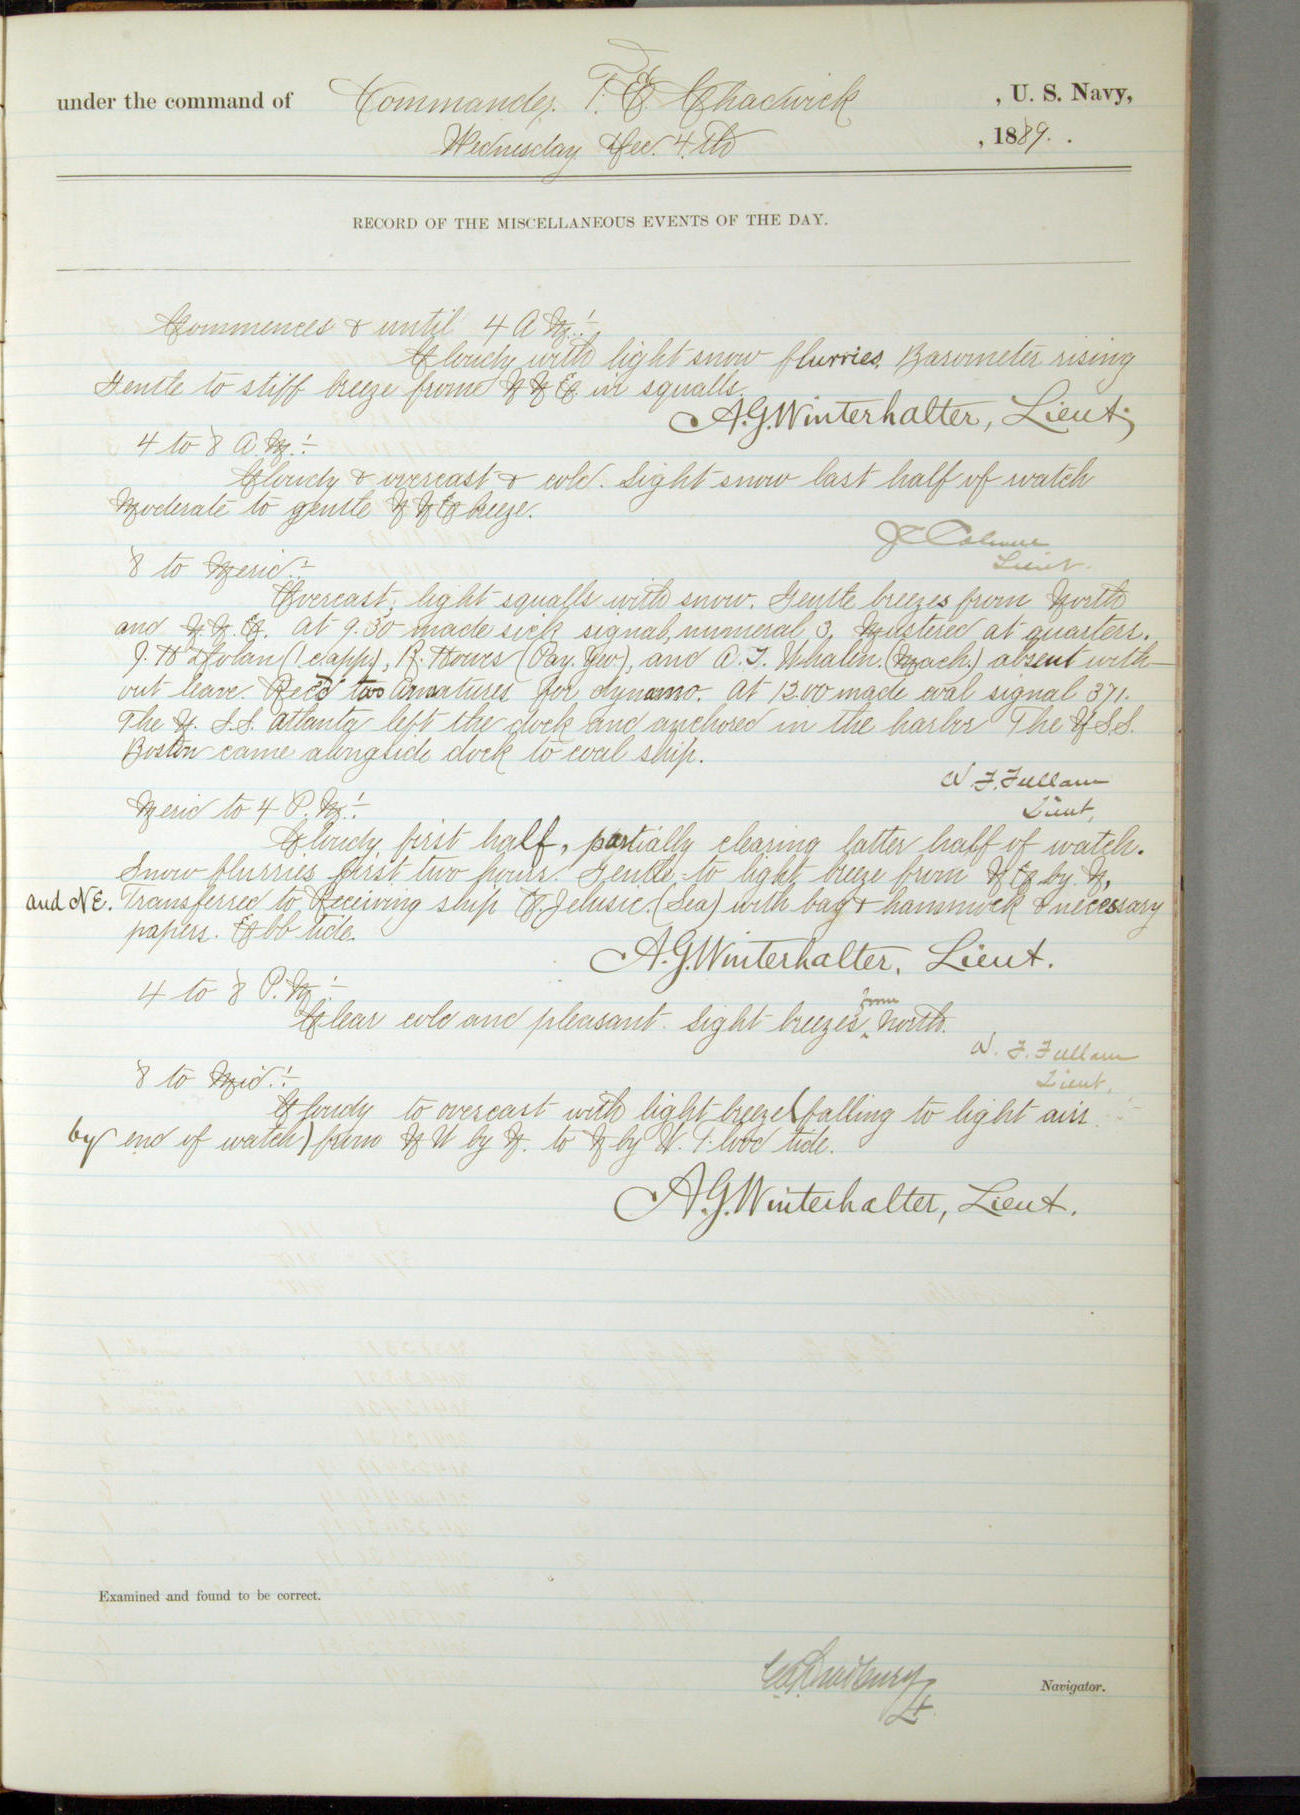 under the command of Commander F. E. Chadwick , U. S. Navy,
Wednesday Dec. 4.th , 1889.
RECORD OF THE MISCELLANEOUS EVENTS OF THE DAY.
Commences & until 4 A.M.:-
Cloudy with light snow flurries. Barometer rising
Gentle to stiff breeze from N.N.E. in squalls.
A.G. Winterhalter, Lieut.
4 to 8 A.M.:-
Cloudy & overcast & cold. Light snow last half of watch
Moderate to gentle N.N.E. breeze.
Lieut.
8 to Merid:-
Overcast, light squalls with snow. Gentle breezes from North
and N.N.E. At 9.30 made sick signal, numeral 3. Mustered at quarters.
J. H. Dolan (1 c app), R. Howes (Pay. Yeo), and A. T. Whalen (Mach.) absent with-
out leave. Recd two armatures for dynamo. At 12.00 made coal signal 371.
The U.S.S. Atlanta left the dock and anchored in the harbor The U.S.S.
Boston came alongside dock to coal ship.
W. F. Fullam
Lieut.
Merid to 4 P.M.:-
Cloudy first half, partially clearing latter half of watch.
Snow flurries first two hours. Gentle to light breeze from N.E. by N.
and NE. Transferred to Receiving ship E. Jelusic (Sea) with bag & hammock & necessary
papers. Ebb tide.
A.G. Winterhalter, Lieut.
4 to 8 P.M.:-
Clear cold and pleasant. Light breezes from North.
W. F. Fullam
Lieut.
8 to Mid.:-
Cloudy to overcast with light breeze (falling to light airs
by end of watch) from N W by N. to N by W. Flood tide.
A.G. Winterhalter, Lieut.
Examined and found to be correct.
Lt.
Navigator.